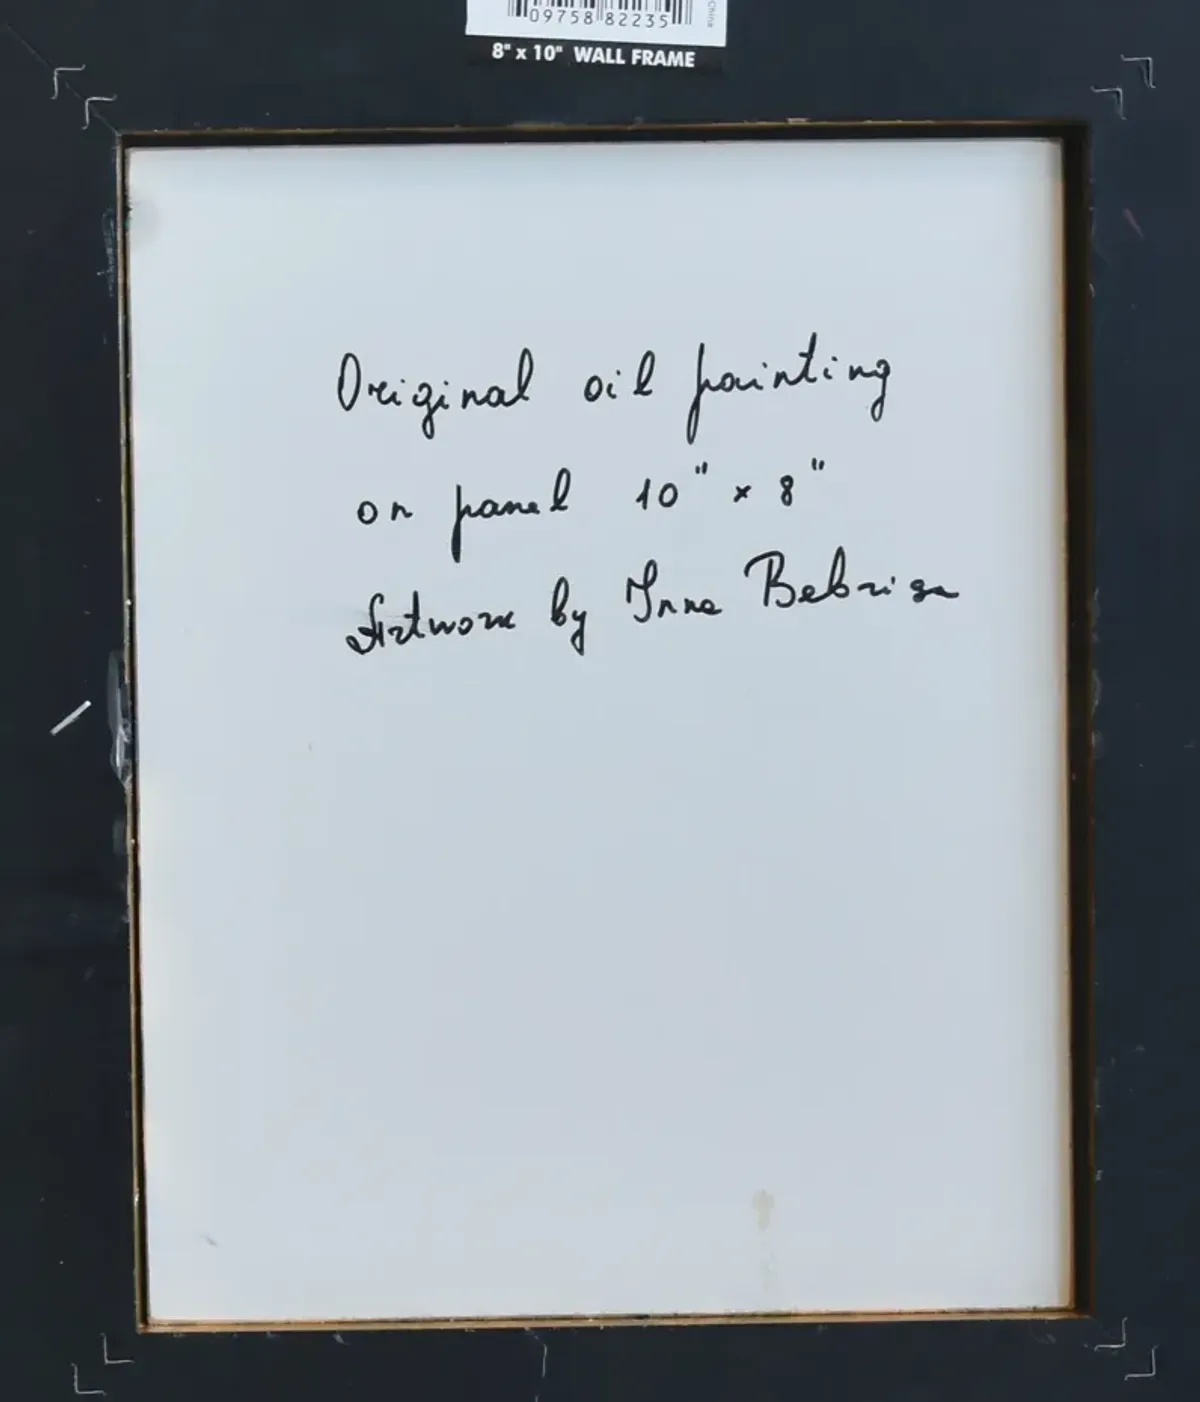 09758 82235
China
8" x 10" WALL FRAME
Original oil painting
on panel 10" x 8"
Artwork by Inna Bebrisa